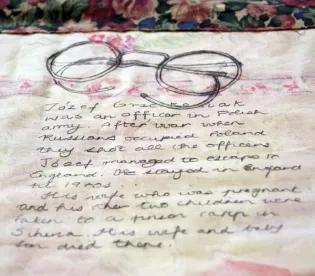 Józef
was an officer in Polish
army. After war when
Russians occupied Poland
they shot all the officers
Józef managed to escape in
England. He stayed in England
till 1970s.
His wife who was pregnant
and his other two children were
taken to a prison camp in
Siberia. His wife and baby
son died there.